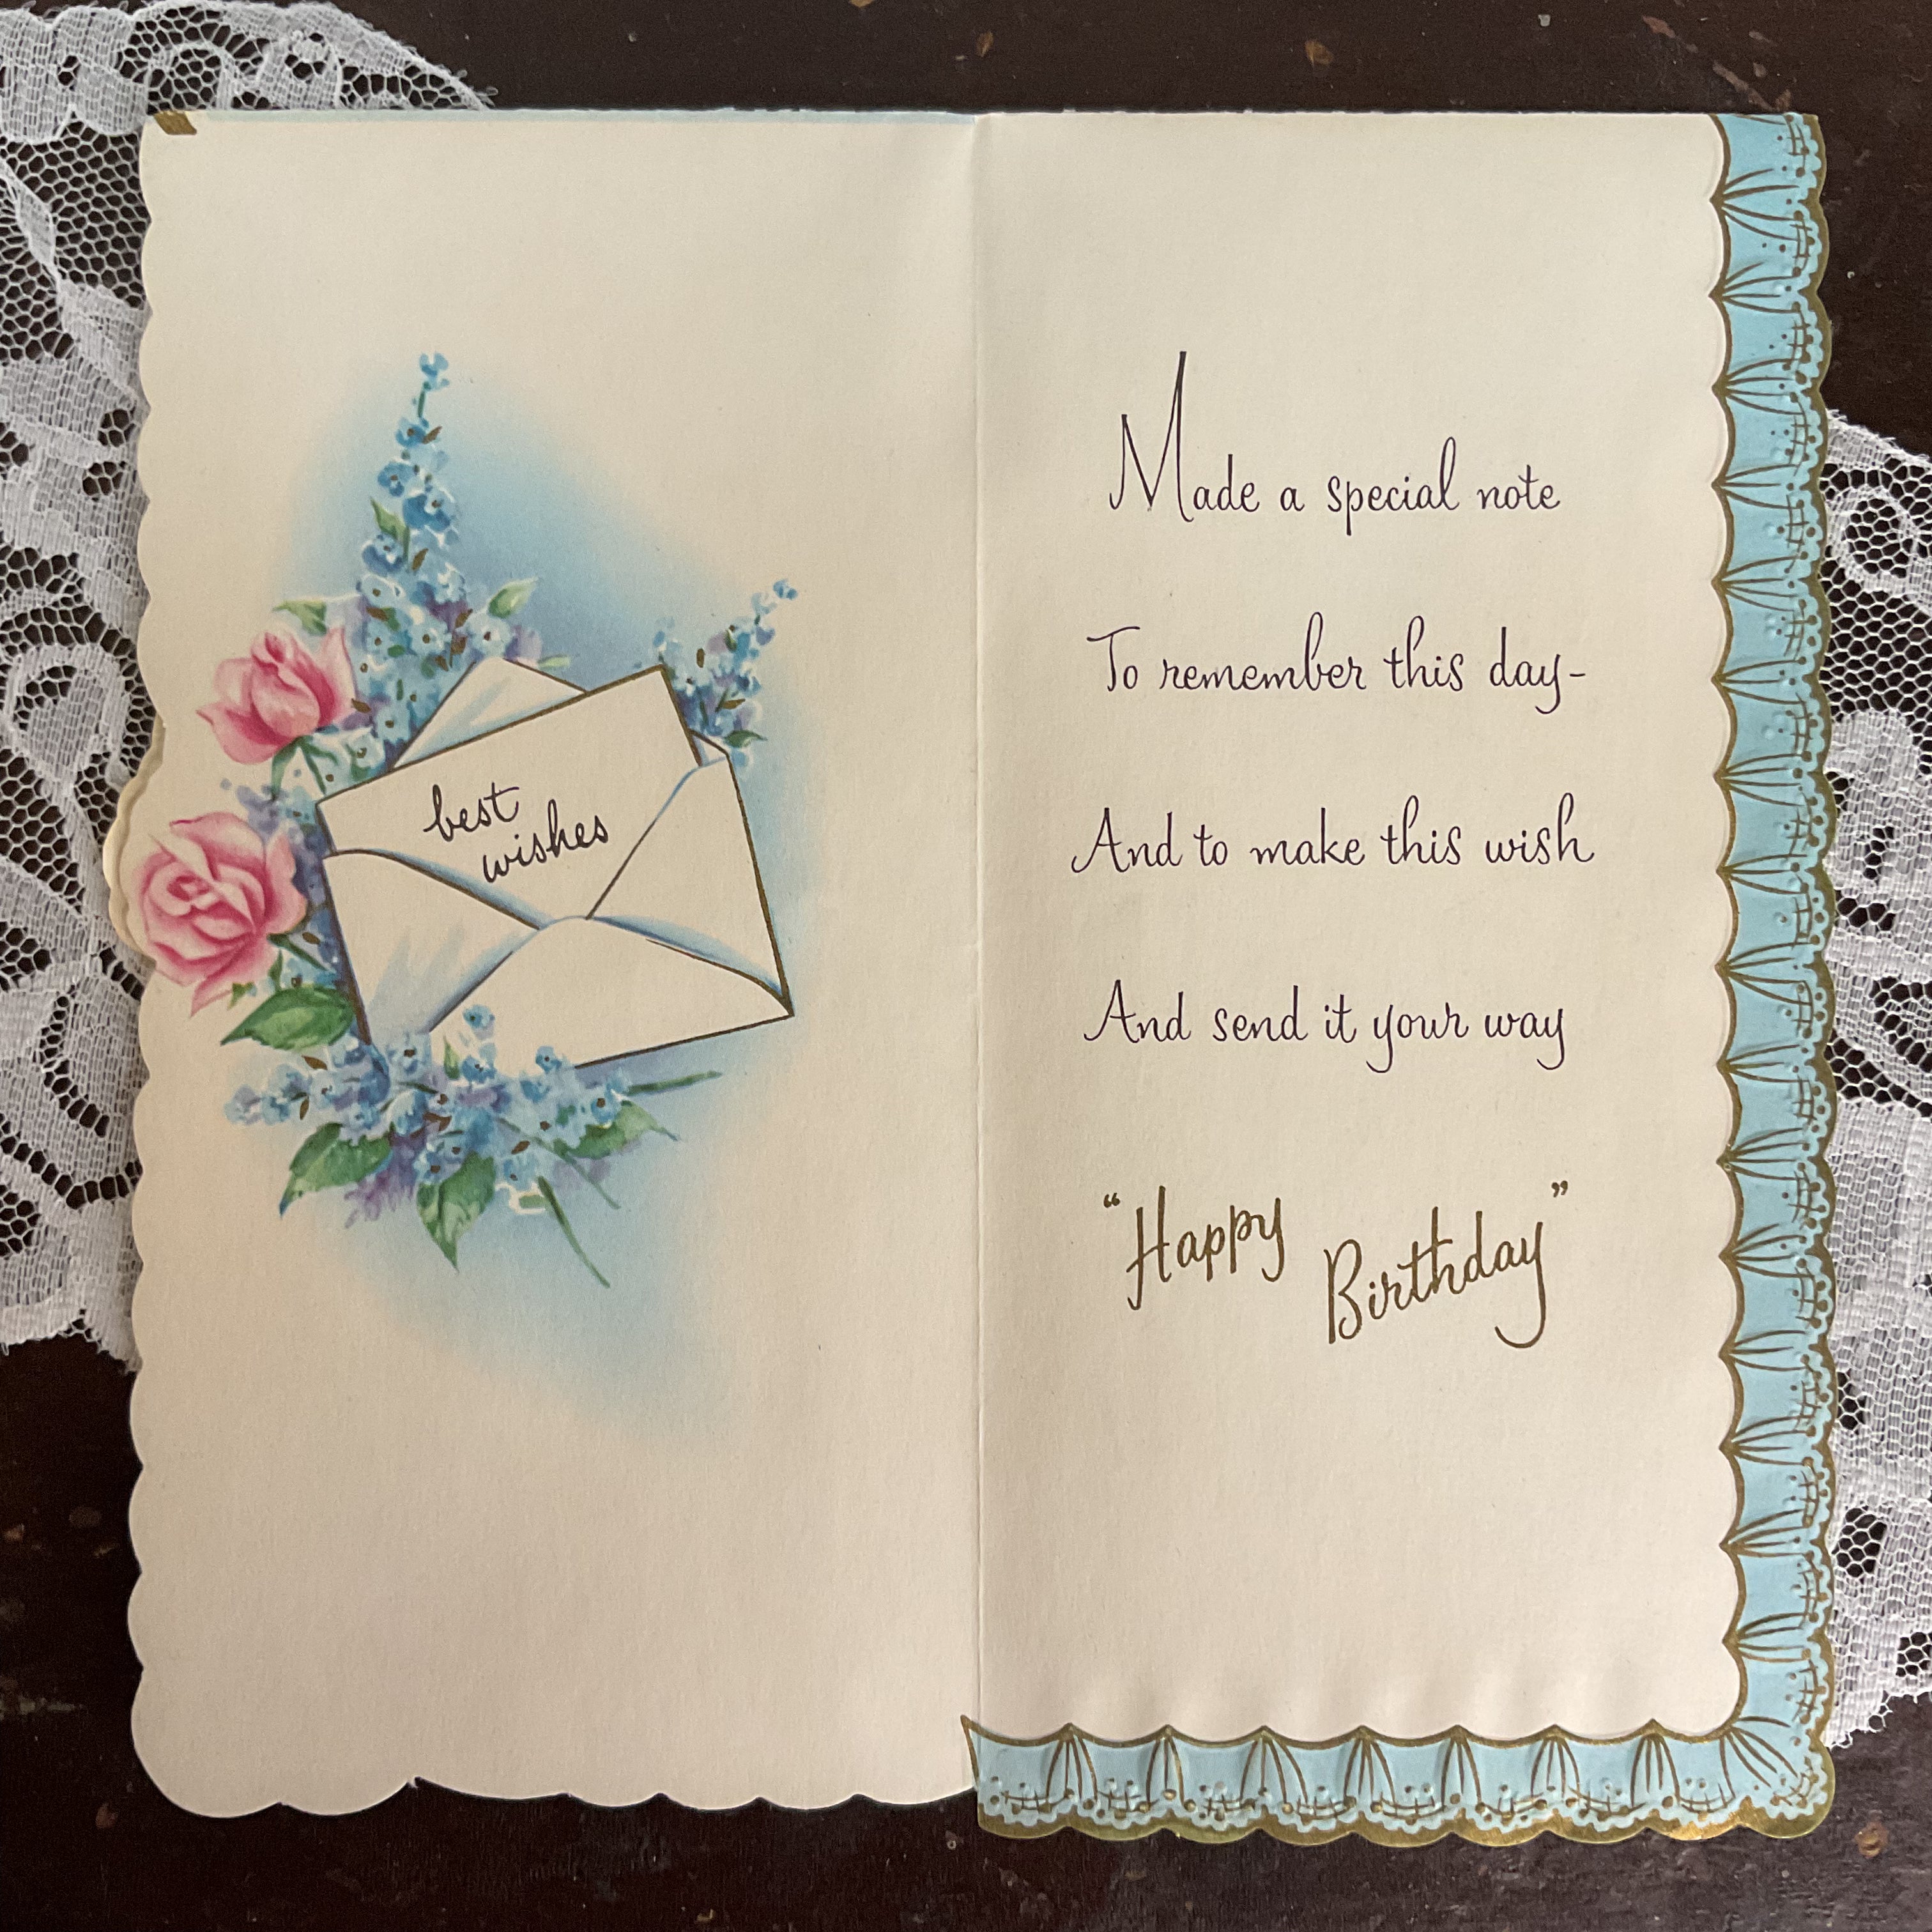 best
wishes
Made a special note
To remember this day-
And to make this wish
And send it your way
“Happy
Birthday”